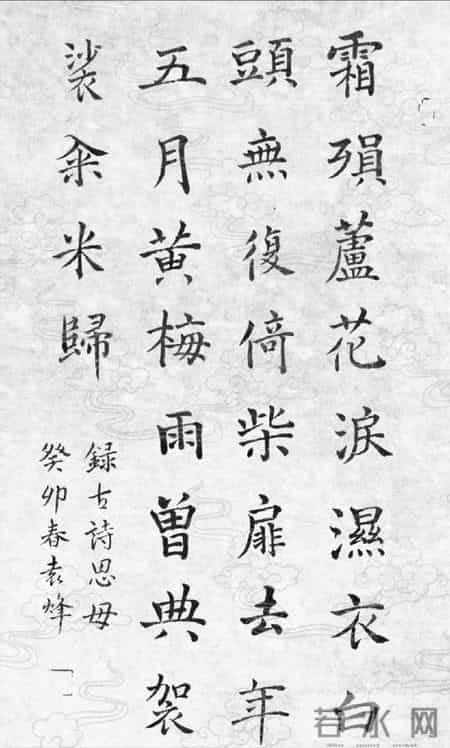 霜殞蘆花淚濕衣白
頭無復倚柴扉去年
五月黃梅雨曾典袈
裟籴米歸
録古詩思母
癸卯春袁烽
若水网